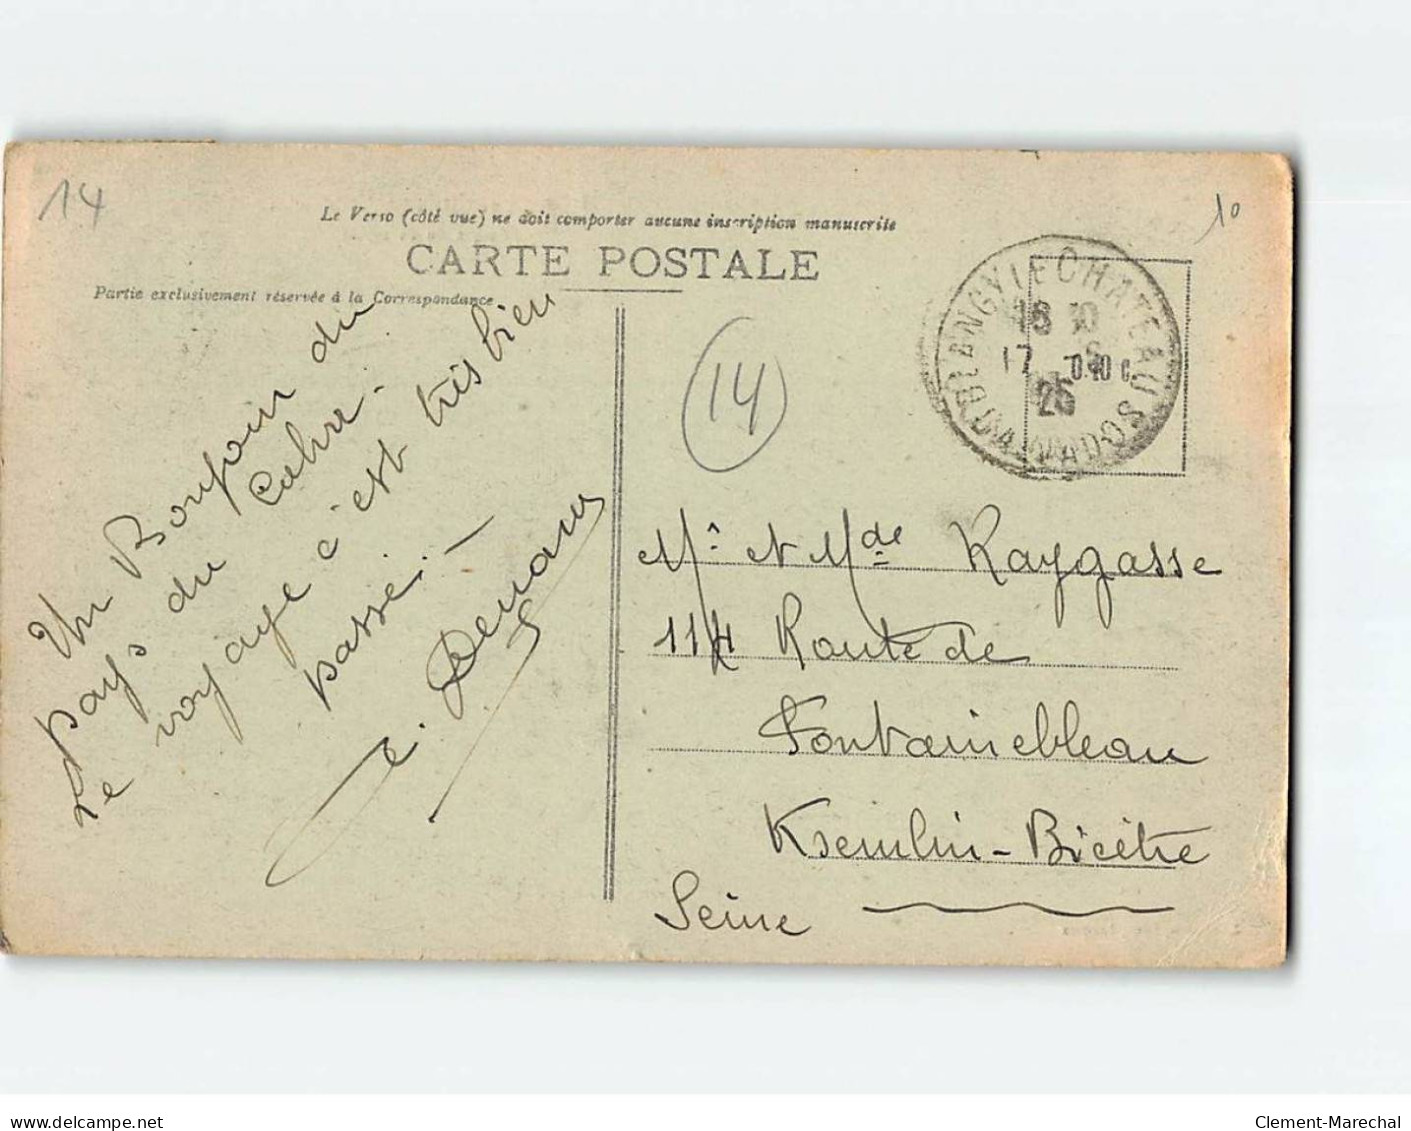 14
10
Le Verso (côté vue) ne doit comporter aucune inscription manuscrite
CARTE POSTALE
Partie exclusivement réservée à la Correspondance
BLANGY LE CHATEAU
18 30
17
0.10 c.
26
CALVADOS
14
Un Bonjour du
pays du cidre.
Le voyage c'est très bien
passé.
Mr et Mde Raygasse
114 Route de
Fontainebleau
Ksemlin-Bicêtre
Seine
delcampe.net
Clement-Marechal